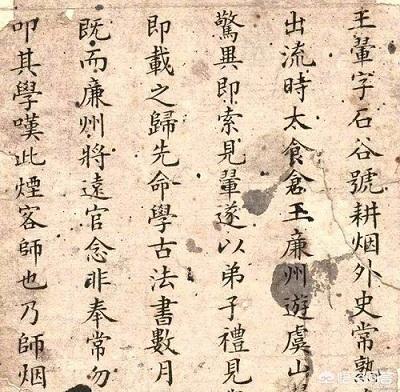 王翬字石谷號耕烟外史常熟
出流時太食倉王廉州遊虞山
驚異即索見翬遂以弟子禮見
即載之歸先命學古法書數月
既而廉州將遠官念非奉常勿
叩其學嘆此煙客師也乃師烟